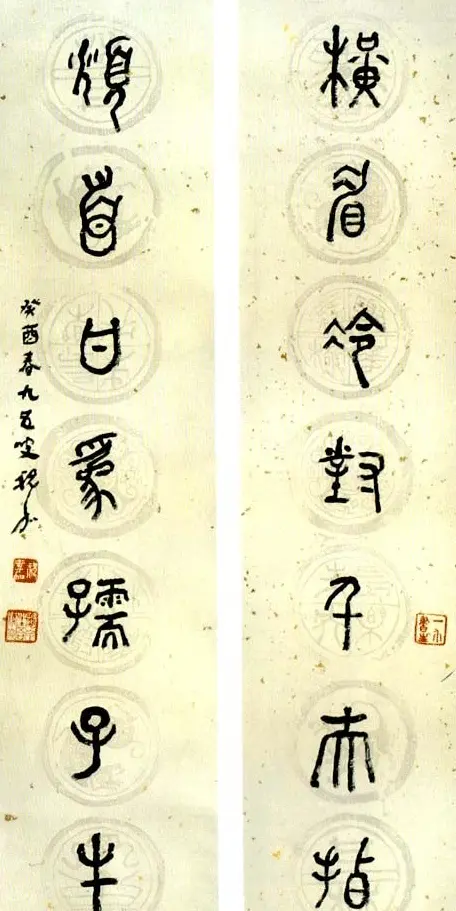 橫眉冷對千夫指
頫首甘爲孺子牛
癸酉春九五叟祝嘉